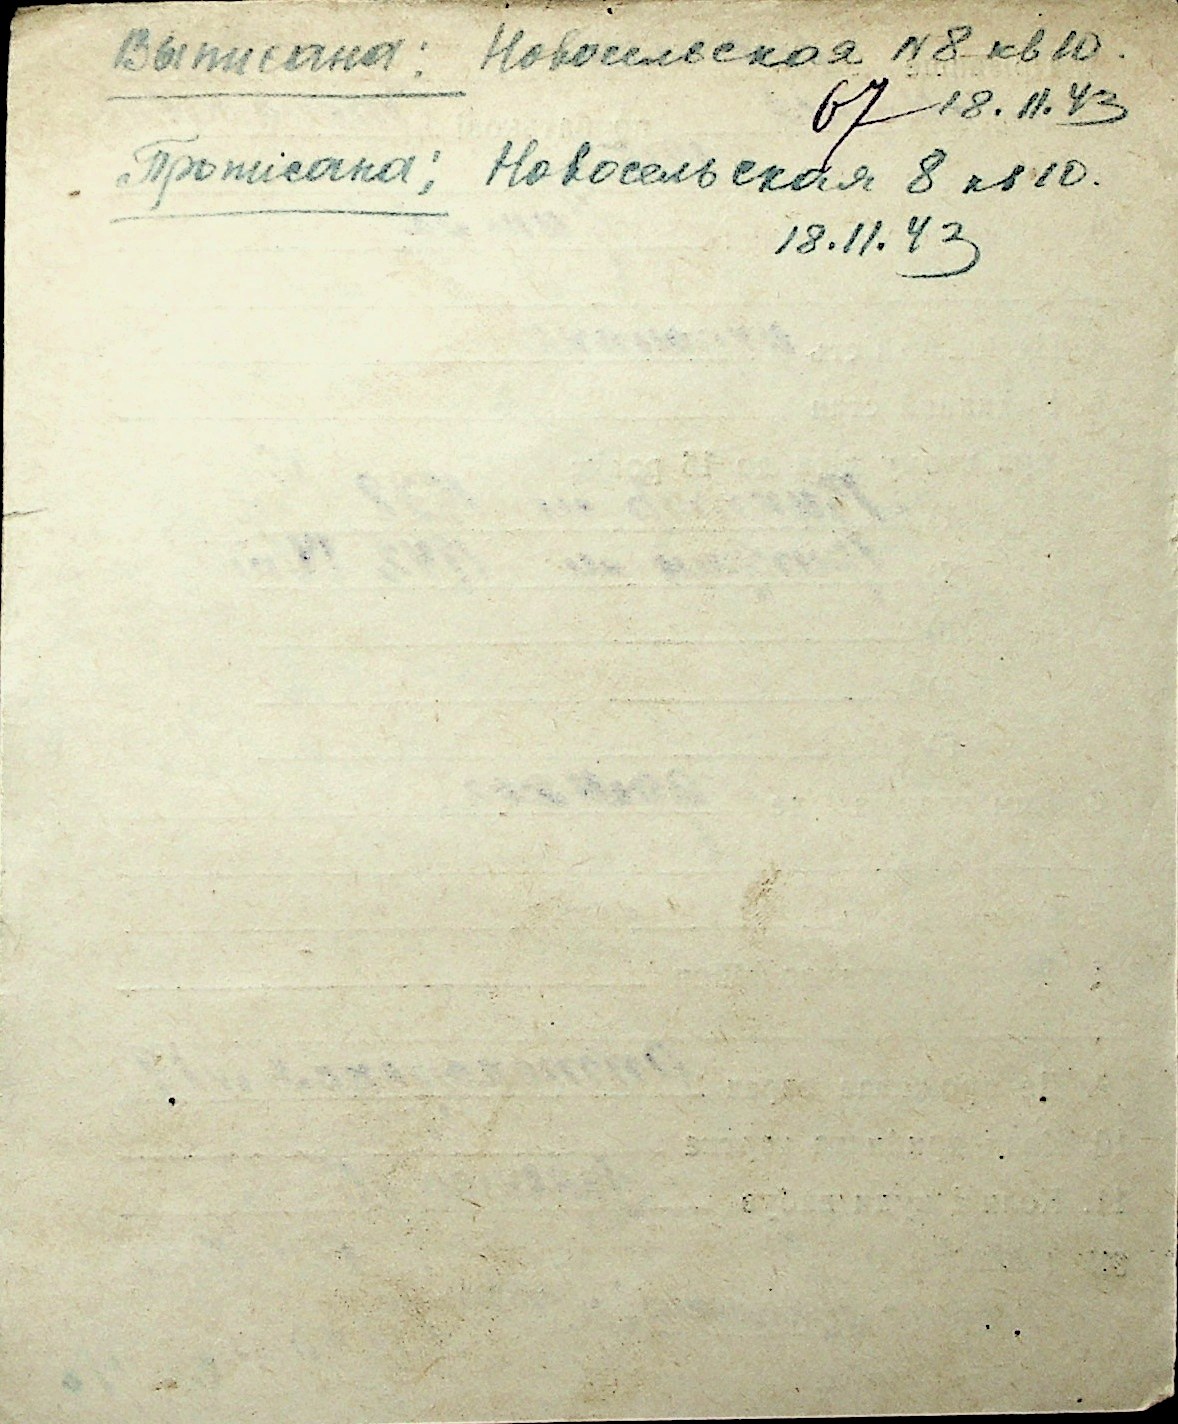 Выписана: Новосельская N 8 кв 10.
67 18.11.43
Прописана; Новосельская 8 кв 10.
18.11.43